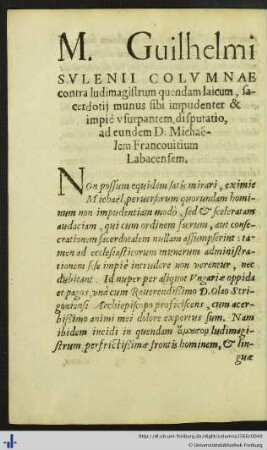 M. Guilhelmi
SVLENII COLVMNAE
contra ludimagistrum quendam laicum, sa-
cerdotij munus sibi impudenter &
impiè vsurpantem, disputatio,
ad eundem D. Michaë-
lem Francouitium
Labacensem.
NOn possum equidem satis mirari, eximie
Michaël, peruersorum quorundam homi-
num non impudentiam modò, sed & sceleratam
audaciam, qui cum ordinem sacrum, aut conse-
crationem sacerdotalem nullam assumpserint: ta-
men ad ecclesiasticorum munerum administra-
tionem sese impiè intrudere non verentur, nec
dubitant. Id nuper per aliquot Vngariæ oppida
et pagos, vnà cum Reuerendissimo D. Olao Stri-
goniensi Archiepiscopo proficiscens, cum acer-
bissimo animi mei dolore expertus sum. Nam
ibidem incidi in quendam ludimagi-
strum, perfrictissimæ frontis hominem, & lin-
guæ
http://dl.ub.uni-freiburg.de/diglit/
© Universitätsbibliothek Freiburg